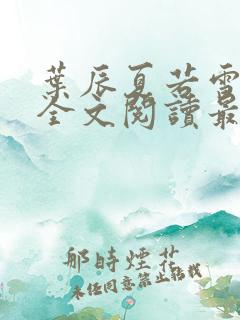 葉辰夏若雪
全文閱讀最
那時煙花
未任同意禁止轉載